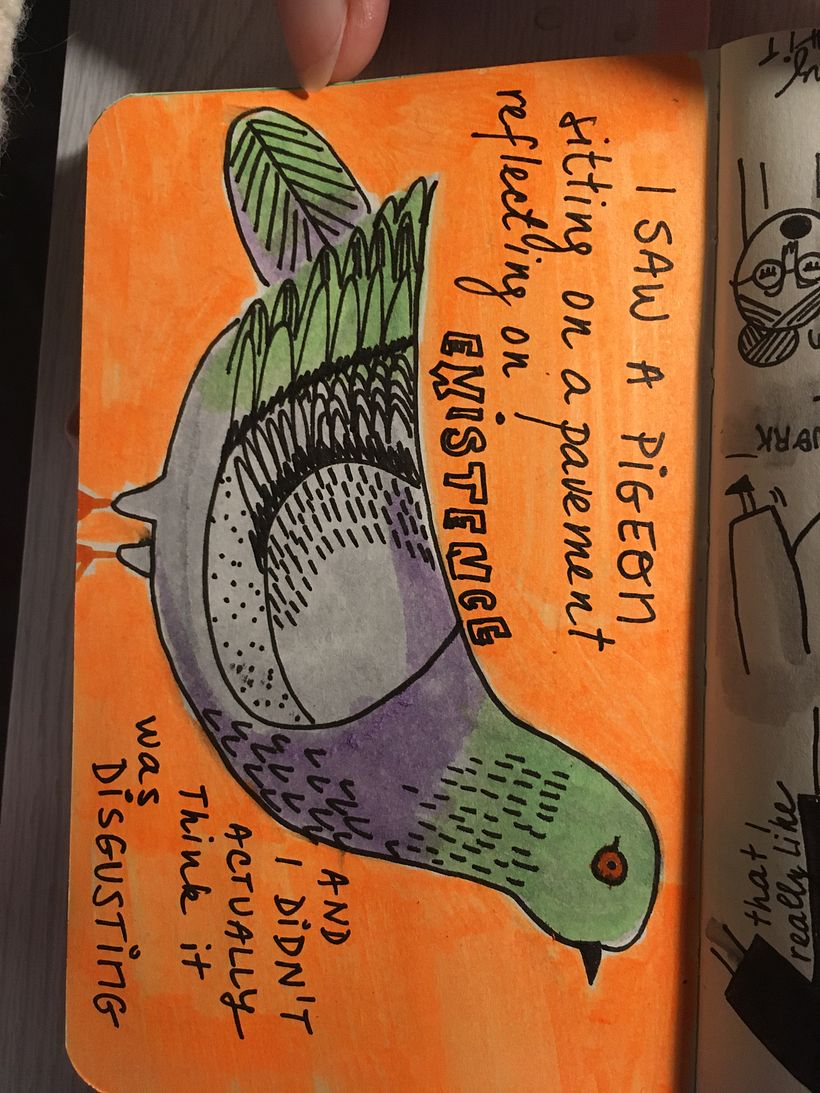 I SAW A PiGEON
sitting on a pavement
reflecting on
EXiSTENCE
AND
I DiDN'T
ACTUALLY
Think it
was
DiSGUSTiNG
that I
really like